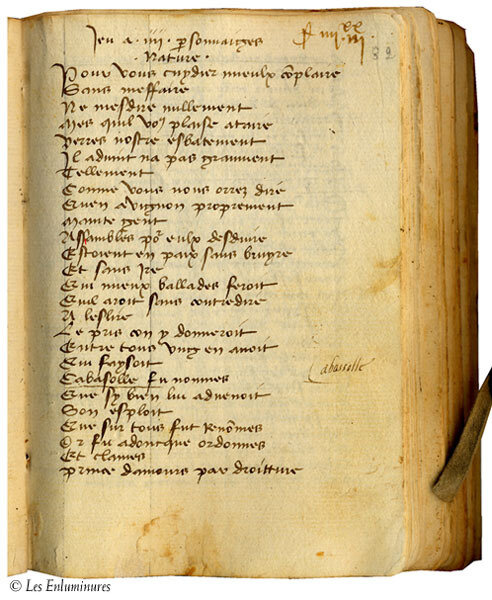 Jeu a .iiii. psonnaiges
xx
F iiii iii
82
Nature .
Pour vous cuydier mieulx cõplaire
Sans meffaire
Ne mesdire nullement
Mes quil voꝰ plaise ataire
Verres nostre esbatement
Il advint na pas graument
Tellement
Comme vous nous orrez dire
Quen avignon proprement
Mainte gent
Assambles por eulx desduire
Estoient en paix sans bruyre
Et sans ire
Qui mieux ballades feroit
Quil aroit sans contredire
A leslire
Le pris con y donneroit
Entre tous ung en avoit
Qui faysoit
Cabasolle fu nommes
Cabassolle
Que sy bien luy advenoit
Son esploit
Que sur tous fut renõmes
Or fu adoncque ordonnes
Et clames
Prince damours par droitture
© Les Enluminures